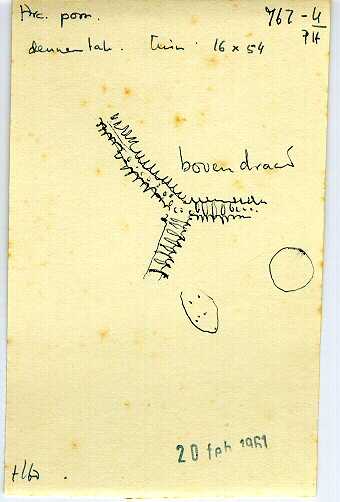 Arc. pom. 767-4
PH
dennentak. Tuin. 16 x 54
bovendraad
20 feb 1961